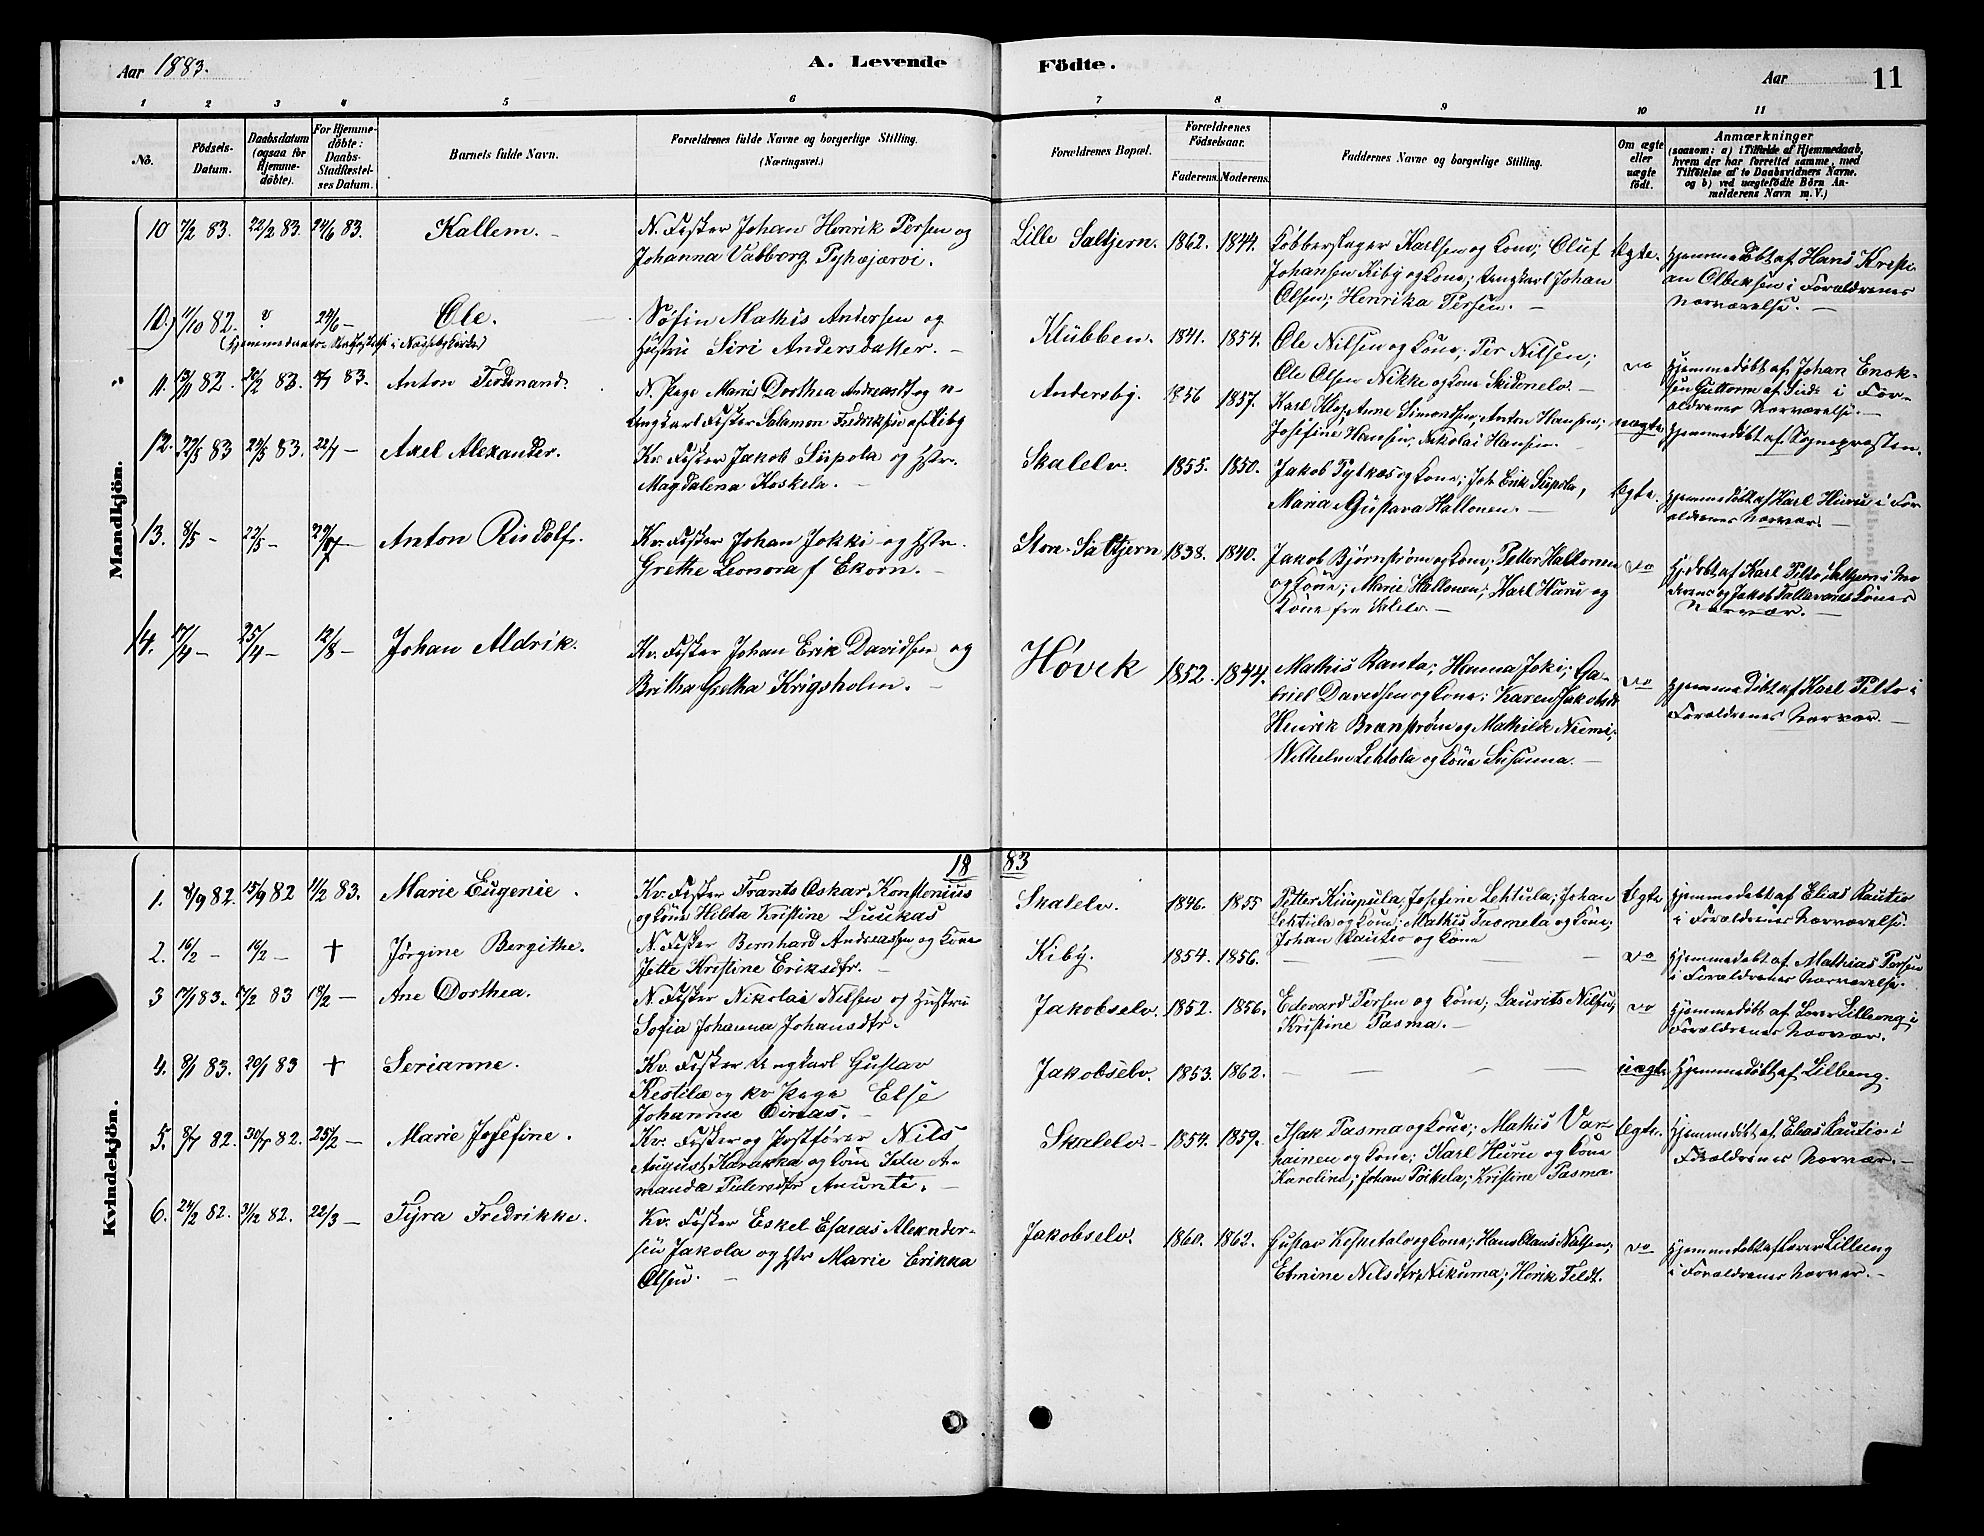 Aar 1883.
A. Levende
Födte.
Aar
11
1 2 3 4 5 6 7 8 9 10 11
No.
Födsels-
Datum.
Daabsdatum
(ogsaa for
Hjemme-
döbte).
For Hjemme-
döbte:
Daabs-
Stadfæstel-
ses Datum.
Barnets fulde Navn.
Forældrenes fulde Navne og borgerlige Stilling.
(Næringsvei.)
Forældrenes Bopæl.
Forældrenes
Födselsaar.
Faderens. Moderens.
Faddernes Navne og borgerlige Stilling.
Om ægte
eller
uægte
födt.
Anmærkninger
(saasom: a) i Tilfælde af Hjemmedaab,
hvem der har forrettet samme, med
Tilföielse af to Daabsvidners Navne.
og b) ved uægtefödte Börn An-
melderens Navn m. V.)
Mandkjön.
10 7/2 83. 22/2 83. 24/6 83. Kallem. –
N. Fisker Johan Henrik Persen og
Johanna Valborg Pyhæjærvi.
Lille Saltjern. 1862. 1844.
Kobberslager Karlsen og Kone; Oluf
Johansen Kiby og Kone; Ungkarl Johan
Olsen; Henrika Persen. –
Ægte.
Hjemmedöbt af Hans Kristi-
an Olbersen i Forældrenes
Nærværelse. –
10.) 11/10 82. ? 24/6 – Ole.
Søfin Mathis Andersen og
Hustru Siri Andersdatter. –
Klubben. 1841. 1854.
Ole Nilsen og Kone; Per Nilsen;
Ole Olsen Nikke og Kone Skidenelv. –
do
Hjemmedöbt af Johan Enok-
sen Guttorm af Side i For-
ældrenes Nærværelse. –
11. 82. 83. 83. Anton Ferdinand.
N. Pige Maria Dorthea Andreasdt og n-
Ungkarl Fisker Salamon Fredriksen af Kiby
Andersby. 1856 1857.
Karl Klop Anne Simondsen; Anton Hansen;
Josefine Hansen; Nikolai Hansen.
uægte
Hjemmedöbt af Sognepræsten.
12. 22/5 83 24/5 83. 22/7 – Axel Alexander.
Kv. Fisker Jakob Siipola og Hstr.
Magdalena Koskela. –
Skalelv. 1855. 1850.
Jakob Pylkæs og Kone; Joh Erik Siipola,
Maria Gustava Hallonen. –
Ægte.
Hjemmedöbt af Karl Huru i For-
ældrenes Nærvær. –
13. 8/5 – 22/5 – 29/7 Anton Rudolf.
Kv. Fisker Johan Jokki og Hstr.
Grethe Leonora f Ekorn. –
Store-Saltjern 1838. 1840.
Jakob Bjørnstrøm og Kone; Petter Hallonen
og Kone; Marie Hallonen; Karl Huru og
Kone fra Skalelv –
do
Hjdöbt af Karl Pilto, Saltjern i Mo
derens og Jakob Tallavaras Kones
Nærvær. –
14. 17/4 – 25/4 – 12/8 – Johan Aldrik.
Kv. Fisker Johan Erik Davidsen og
Britha Gretha Krigsholm. –
Høvik 1852. 1844.
Mathis Ranta; Hanna Joki; Ga-
briel Davidsen og Kone; Karen Jakobsdt
Henrik Brænstrøm og Mathilde Niemi;
Wilhelm Lehtola og Kone Susanna. –
do
Hjemmedöbt af Karl Pilto i
Forældrenes Nærvær. –
18 83
Kvindekjön.
1. 8/9 82. 15/9 82 11/2 83. Marie Eugenie.
Kv. Fisker Frants Oskar Konstenius
og Kone Hilda Kristine Luukas
Skalelv. 1846. 1855
Petter Kumpula; Josefine Lehtula; Johan
Lehtula og Kone; Mathis Pasmela og Kone;
Johan Rautio og Kone
Ægte
Hjemmedöbt af Elias Rautio
i Forældrenes Nærværelse.
2. 16/2 – 16/2 – + Jørgine Bergithe.
N. Fisker Bernhard Andreassen og Kone
Jette Kristine Eriksdtr. –
Kiby. 1854. 1856. – – – –
do
Hjemmedöbt af Mathias Persen
i Forældrenes Nærværelse.
3 17/1 83. 7/2 83 18/2 – Ane Dorthea.
N. Fisker Nikolai Nilsen og Hustru
Sofia Johanna Johansdtr. –
Jakobselv. 1852. 1856.
Edevard Persen og Kone; Laurits Nilsen;
Kristine Pasma. –
do
Hjemmedöbt af Lærer Lilleeng i
Forældrenes Nærvær.
4. 8/1 83. 20/1 83 + Serianne.
Kv. Fisker Ungkarl Gustav
Kestilæ og kv Pige Else
Johannæ Oinas. –
Jakobselv. 1853. 1862. – – – –
uægte
Hjemmedöbt af Lilleeng.
5. 8/7 82. 30/7 82. 25/2 – Marie Josefine.
Kv. Fisker og Postfører Nils
August Karakka og Kone Ida A-
manda Pedersdtr Anunti. –
Skalelv. – 1854. 1859.
Isak Pasma og Kone; Mathis Var-
hainen og Kone; Karl Huru og Kone
Karoline; Johan Poikela; Kristine Pasma
Ægte.
Hjemmedöbt af Elias Rautio i
Forældrenes Nærvær. –
6. 24/12 82. 31/12 82. 22/3 – Tyra Fredrikke.
Kv. Fisker Eskel Esaias Alexander-
sen Jakola og Hstr Marie Erikka
Olsen. –
Jakobselv. 1860. 1862.
Gustav Keskitalo og Kone; Hans Claus Nilsen;
Elmine Nilsdtr Nikuma; Henrik Feldt.
do
Hjemmedöbt af Lærer Lilleeng
i Forældrenes Nærvær. –